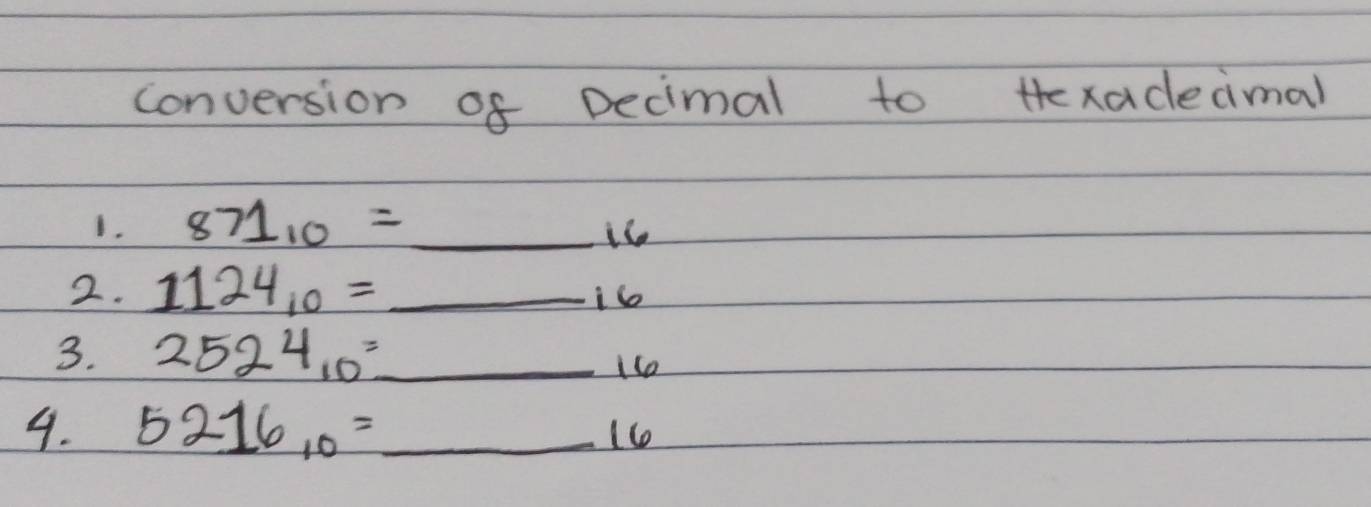 Conversion of Decimal to Hexadecimal
1. 871₁₀ = ______₁₆
2. 1124₁₀ = ______₁₆
3. 2524₁₀ = ______₁₆
4. 5216₁₀ = ______₁₆